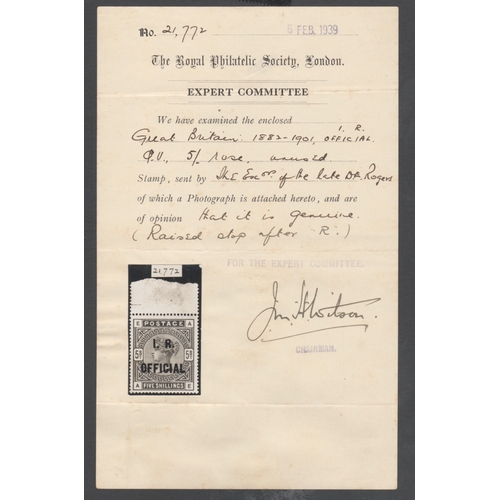 No. 21,772
6 FEB. 1939
The Royal Philatelic Society, London.
EXPERT COMMITTEE
We have examined the enclosed
Great Britain. 1882-1901, I. R. OFFICIAL
Q.V., 5/ rose, unused
Stamp, sent by The Exors. of the late Dr. Rogers
of which a Photograph is attached hereto, and are
of opinion that it is genuine.
(Raised stop after 'R'.)
FOR THE EXPERT COMMITTEE
CHAIRMAN.
21,772
E POSTAGE A
5/- 5/-
I. R.
OFFICIAL
A FIVE SHILLINGS E